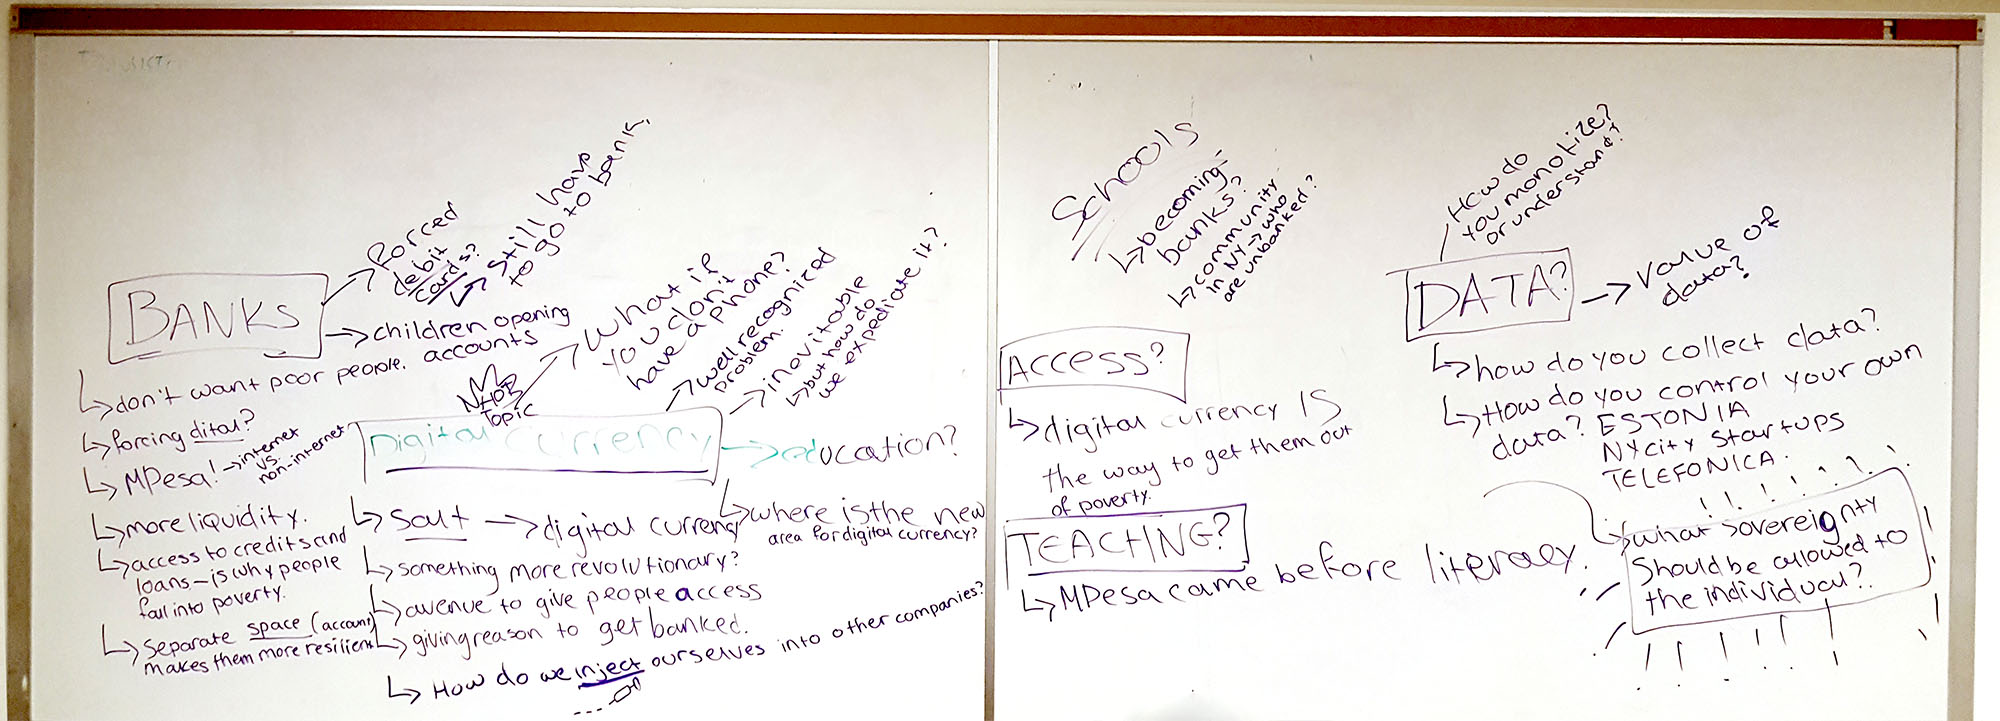 BANKS
Forced
debit
cards?
still have
to go to bank.
children opening
accounts
don't want poor people.
forcing dital?
MPesa! → internet
vs.
non-internet
more liquidity.
access to credits and
loans – is why people
fall into poverty.
separate space (account)
makes them more resilient
Topic
Digital currency
what if
you don't
have a phone?
well recognized
problem.
inevitable
but how do
we expediate it?
education?
where is the new
area for digital currency?
→ digital currency
something more revolutionary?
avenue to give people access
giving reason to get banked.
How do we inject ourselves into other companies?
Schools
becoming
banks?
community
in NY → who
are unbanked?
ACCESS?
digital currency IS
the way to get them out
of poverty.
TEACHING?
MPesa came before literacy.
How do
you monotize?
or understand?
DATA?
value of
data?
how do you collect data?
How do you control your own
data? ESTONIA
NYcity startups
TELEFONICA.
what sovereignty
Should be allowed to
the individual?